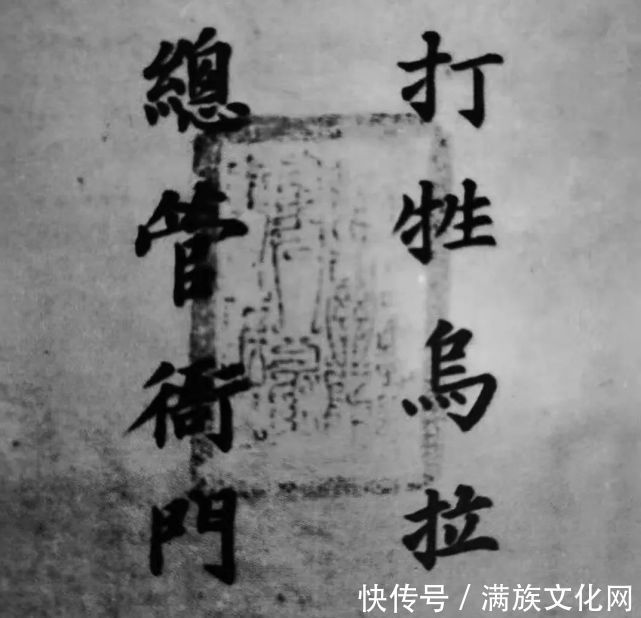 打牲烏拉
總管衙門
快传号/满族文化网